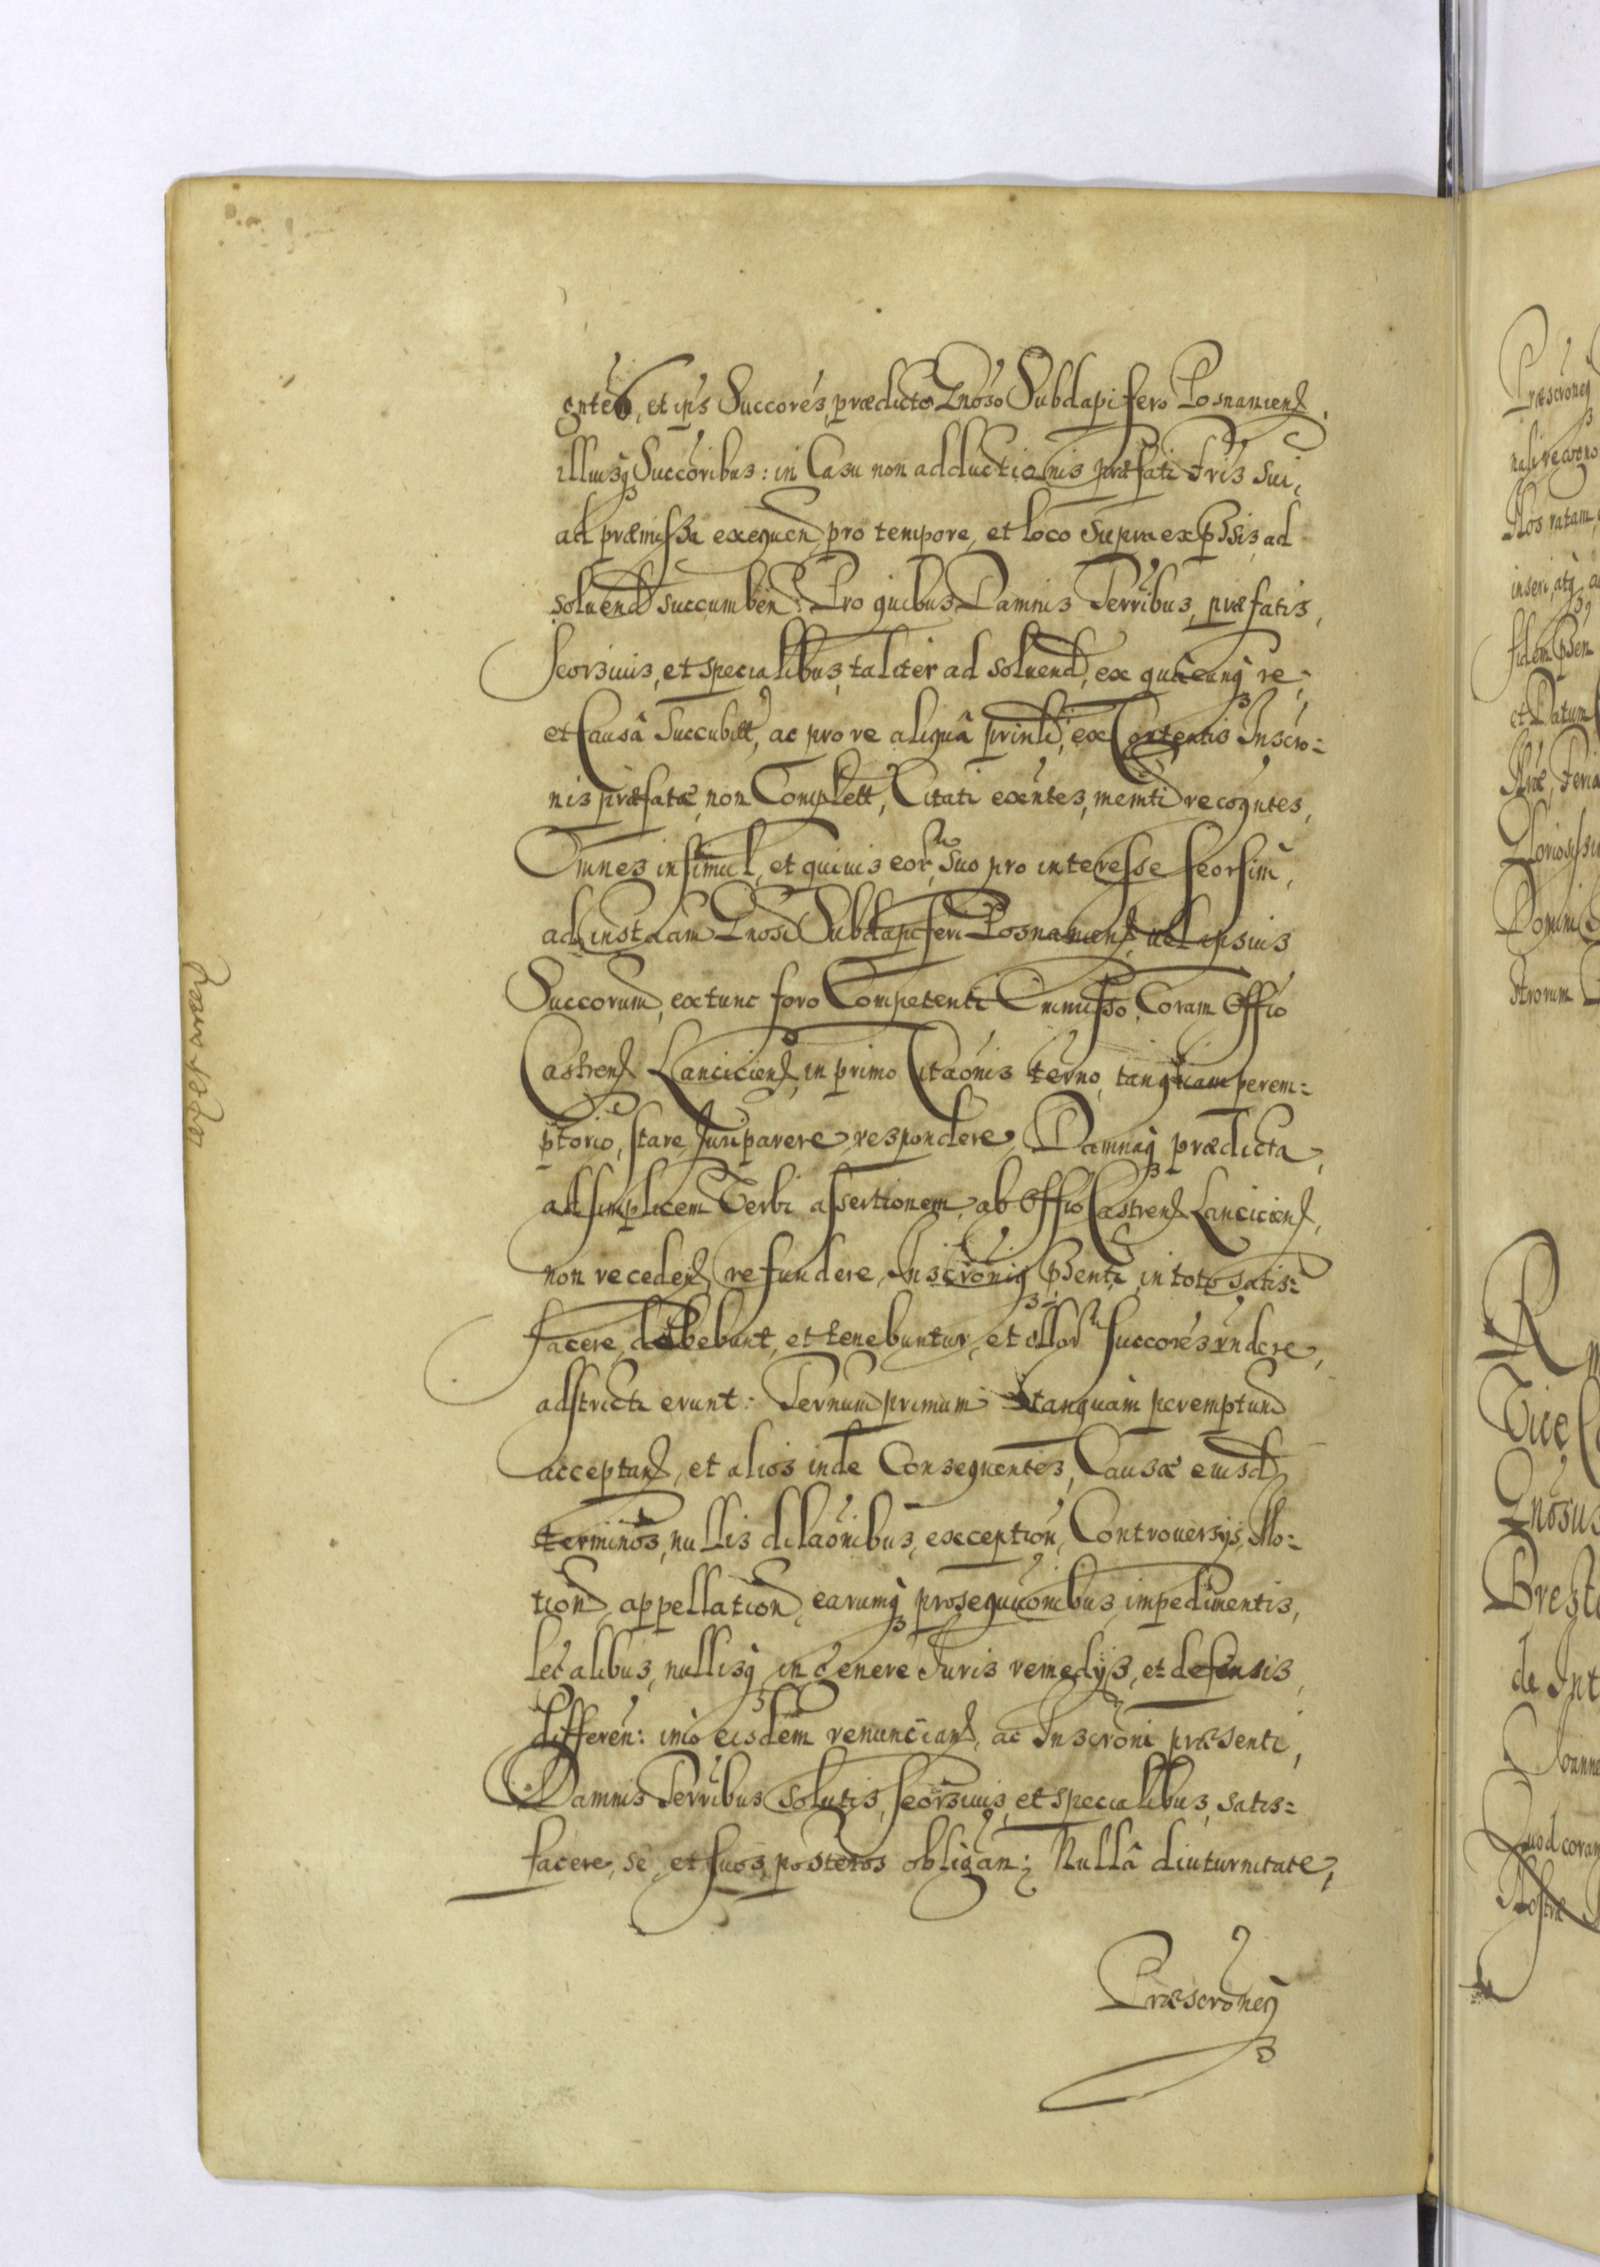 gntes, et ips Succores, prædicto Gnoso Subdapifero Posnanien,
illiusq Succoribus: in Casu non adductionis præfati Fris Sui,
ad præmissa exequen pro tempore, et loco Supra expssis, ad
soluend succumben: Pro quibus Damnis Terribus, præfatis,
seorsiuis, et specialibus, taliter ad soluend, ex quacunq re,
et Causâ Succubitt, ac pro re aliquâ prinli, ex Contentis Inscro=
nis præfatæ, non Complett, Citati exentes, memti recogntes,
Omnes insimul, et quiuis eor, Suo pro interesse seorsim,
ad instaam Gnosi Subdapiferi Posnanien, uel ipsius
Succorum, extunc foro Competenti Omnisso, Coram Offio
Castren Lancicien, in primo Citaonis terno, tanquam perem=
ptorio, stare, Juri parere, respondere, Damnaq prædicta,
ad simplicem Verbi assertionem, ab Offio Castren Lancicien,
non receden, refundere, Inscroniq psenti, in toto satis=
facere, debebunt, et tenebuntur, et illor succores rndere,
adstricti erunt: Ternum primum tanquam peremptum
acceptan, et alios inde Consequentes, Causæ eiusd,
terminos, nullis dilaonibus, exception, Controuersys, Mo=
tion appellation, earumq prosequuonibus impedimentis,
lecalibus, nullisq in genere Juris remedys, et defensis,
differen: imo eisdem renuncian, ac Inscroni præsenti,
Damnis Terribus Solutis, seorsiuis, et specialibus, satis=
facere, se et suos posteros obligan; Nullâ diuturnitate,
Præscroneq
Præscroneq
nali recogno
Nos ratam,
inseri, atq
fidem psen
et Datum
Feria
Domini
strorum
Vice
Gnosus
Brest
de Int
Joanne
Quod coram
Nostræ